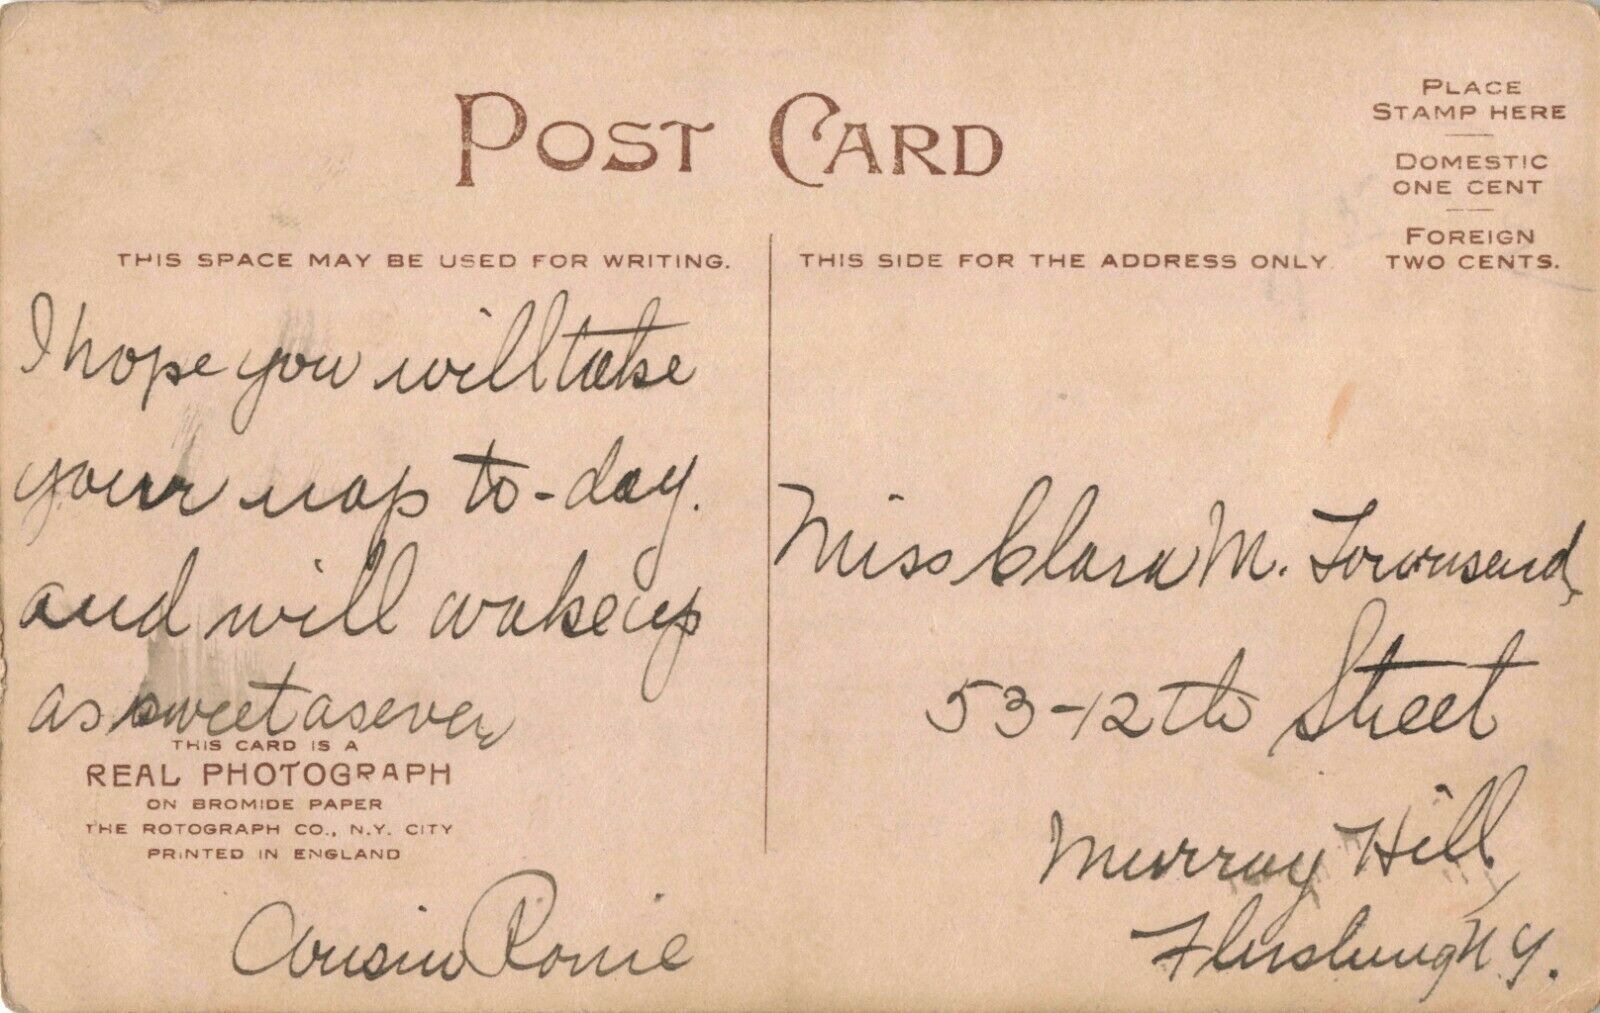 POST CARD
PLACE
STAMP HERE
DOMESTIC
ONE CENT
FOREIGN
TWO CENTS.
THIS SPACE MAY BE USED FOR WRITING.
I hope you will take
your nap to-day.
and will wake up
as sweet as ever
THIS CARD IS A
REAL PHOTOGRAPH
ON BROMIDE PAPER
THE ROTOGRAPH CO., N.Y. CITY
PRINTED IN ENGLAND
Cousin Romie
THIS SIDE FOR THE ADDRESS ONLY.
Miss Clara M. Townsend,
53-12th Street
Murray Hill,
Flushing N.Y.